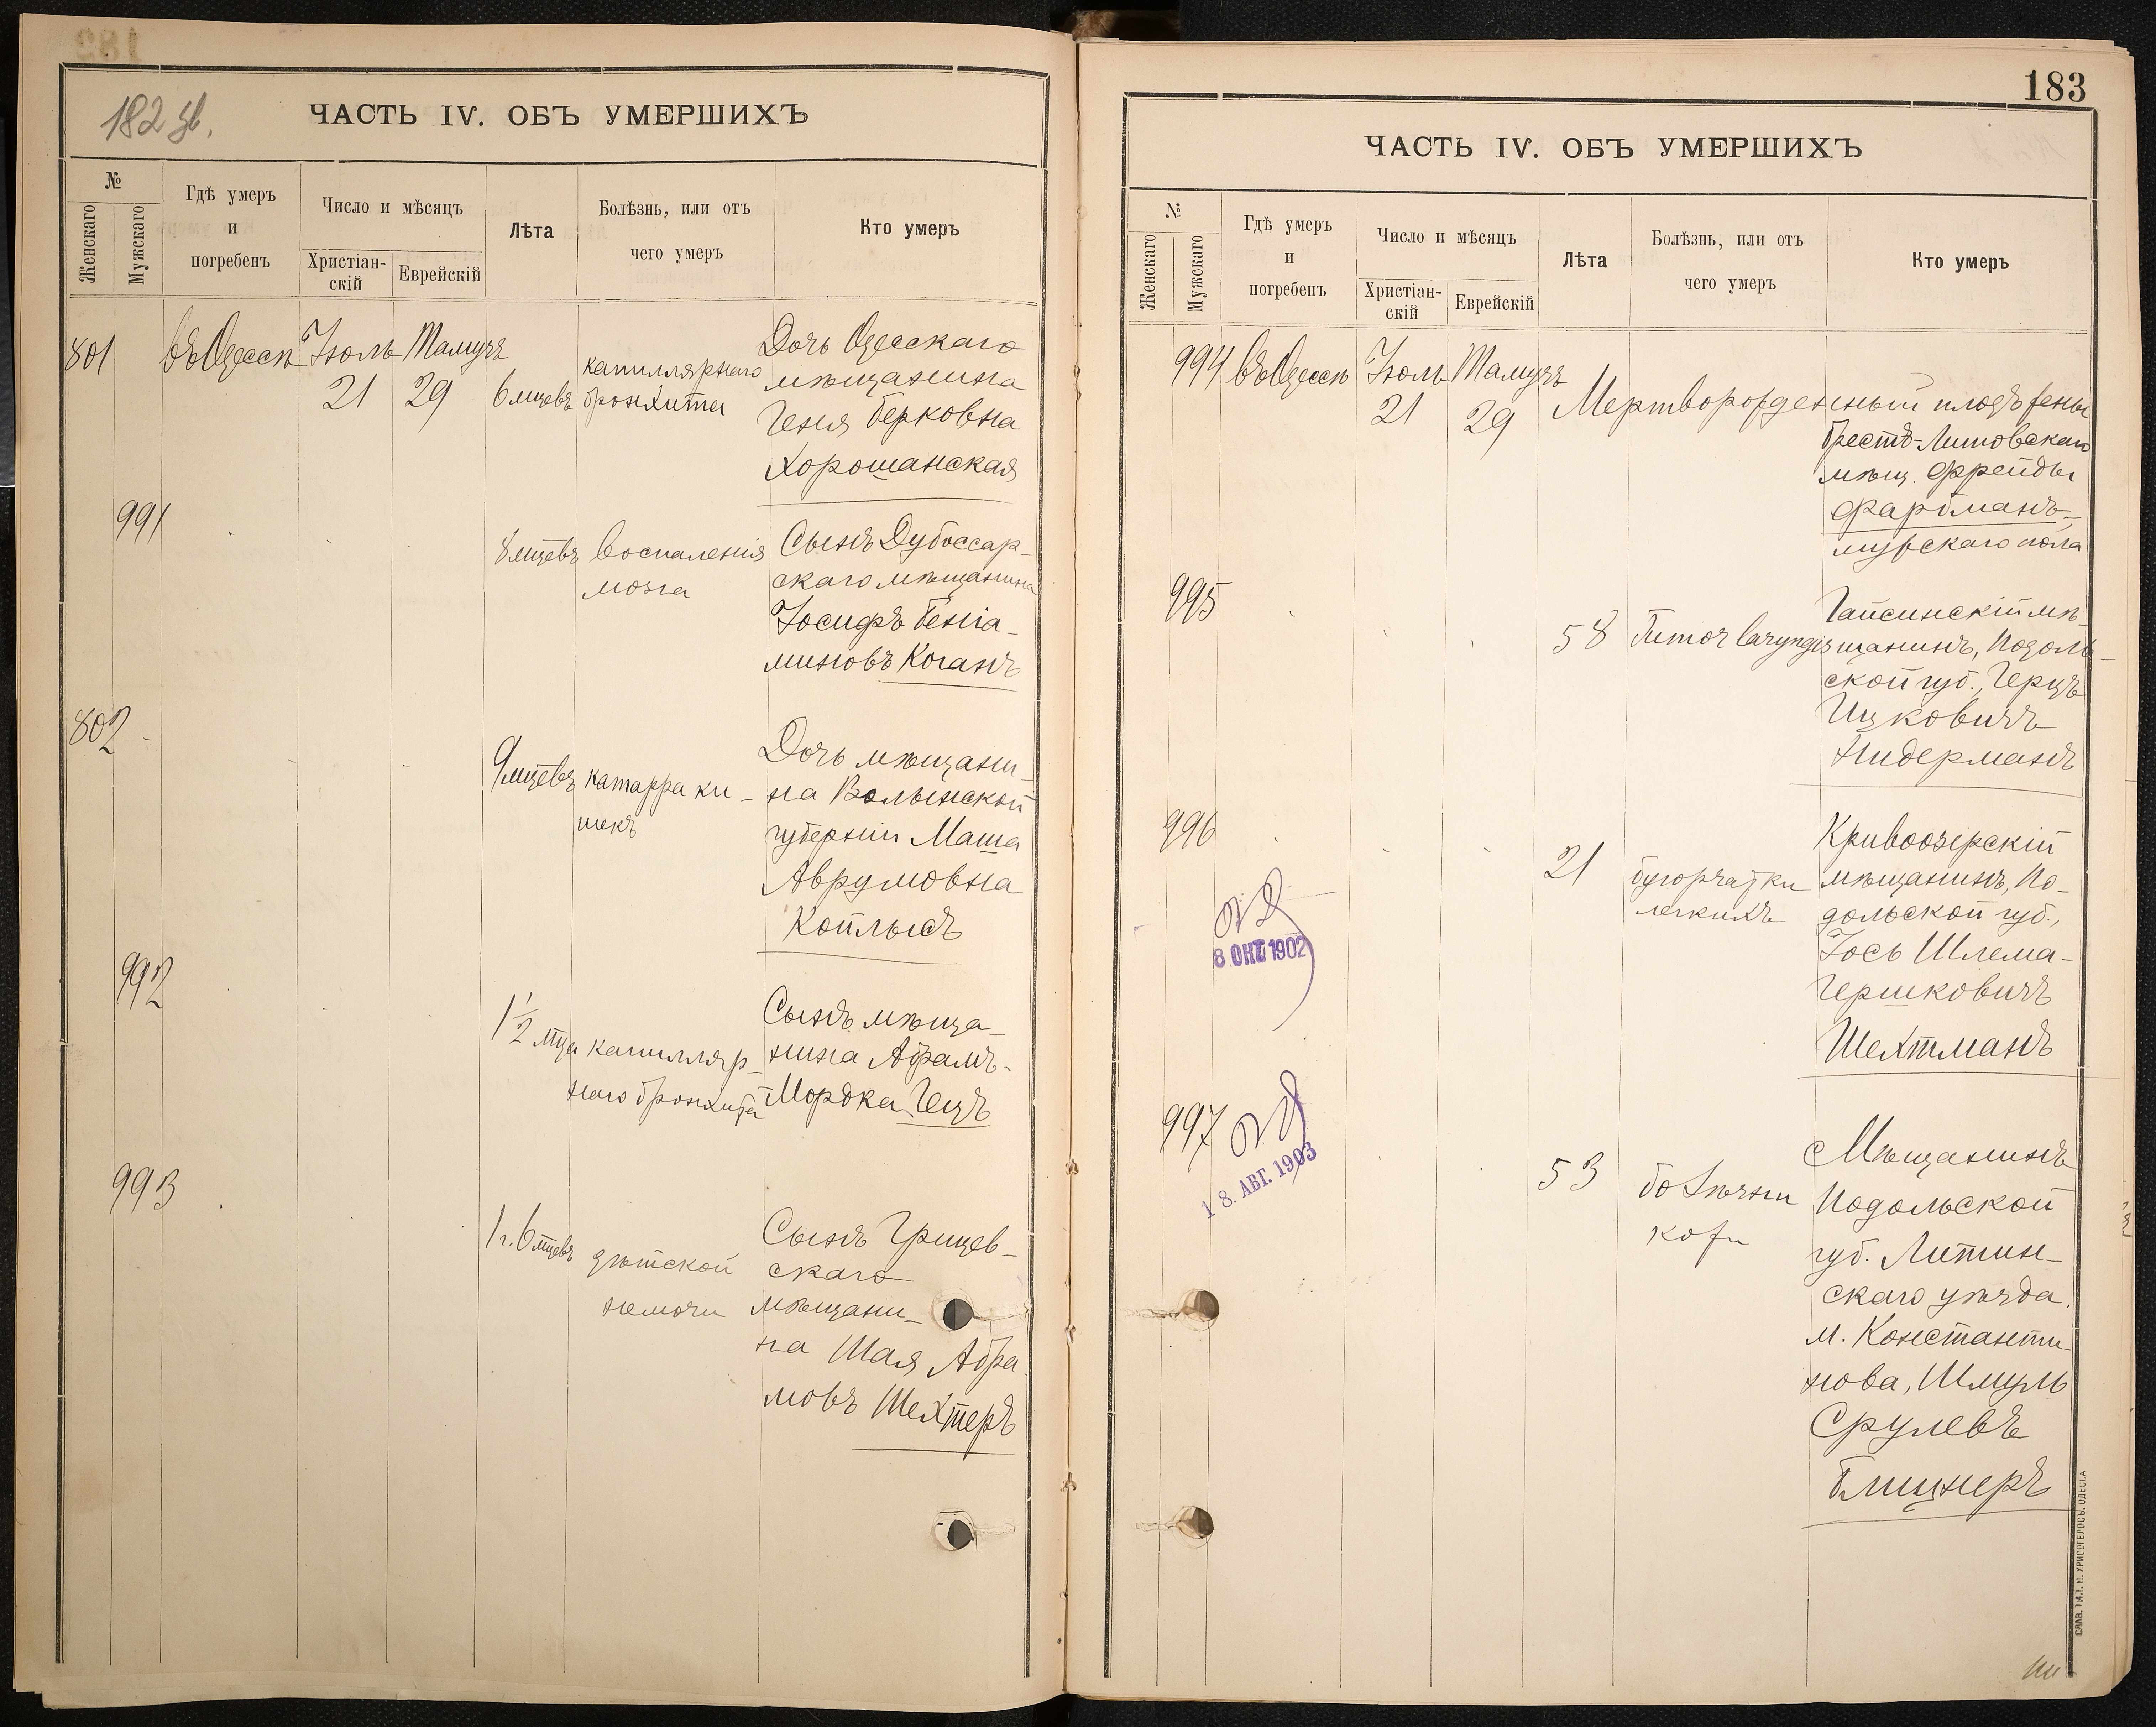 182 зв.
ЧАСТЬ IV. ОБЪ УМЕРШИХЪ
№
Женскаго
Мужскаго
Гдѣ умеръ
и
погребенъ
Число и мѣсяцъ
Христіан-
скій
Еврейскій
Лѣта
Болѣзнь, или отъ
чего умеръ
Кто умеръ
801
въ Одессѣ
Іюль
21
Тамузъ
29
6 мцевъ
капиллярнаго
бронхита
Дочь Одесскаго
мѣщанина
Геня Берковна
Хорошанская
991
8 мцевъ
воспаленія
мозга
Сынъ Дубоссар-
скаго мѣщанина
Іосифъ Беніа-
миновъ Коганъ
802
9 мцевъ
катарра ки-
шекъ
Дочь мѣщани-
на Волынской
губерніи Маша
Аврумовна
Койлысъ
992
1 1/2 мца
капилляр-
наго бронхита
Сынъ мѣща-
нина Абрамъ-
Мордка Гецъ
993
1 г. 6 мцевъ
дѣтской
немочи
Сынъ Грицев-
скаго
мѣщани-
на Шая Абра-
мовъ Шехтеръ
183
ЧАСТЬ IV. ОБЪ УМЕРШИХЪ
№
Женскаго
Мужскаго
Гдѣ умеръ
и
погребенъ
Число и мѣсяцъ
Христіан-
скій
Еврейскій
Лѣта
Болѣзнь, или отъ
чего умеръ
Кто умеръ
994
въ Одессѣ
Іюль
21
Тамузъ
29
Мертворожденный плодъ жены
Брестъ-Литовскаго
мѣщ. Фрейды
Фарбманъ,
мужскаго пола
995
58
Tumor laryngis
Гайсинскій мѣ-
щанинъ, Подоль-
ской губ., Герцъ
Ицковичъ
Нидерманъ
996
8 ОКТ 1902
21
бугорчатки
легкихъ
Кривоозерскій
мѣщанинъ, По-
дольской губ.,
Іось Шлема-
Гершковичъ
Шехтманъ
997
18. АВГ. 1903
53
болѣзни
кожи
Мѣщанинъ
Подольской
губ. Литин-
скаго уѣзда
м. Константи-
нова, Шмуль
Срулевъ
Блицнеръ